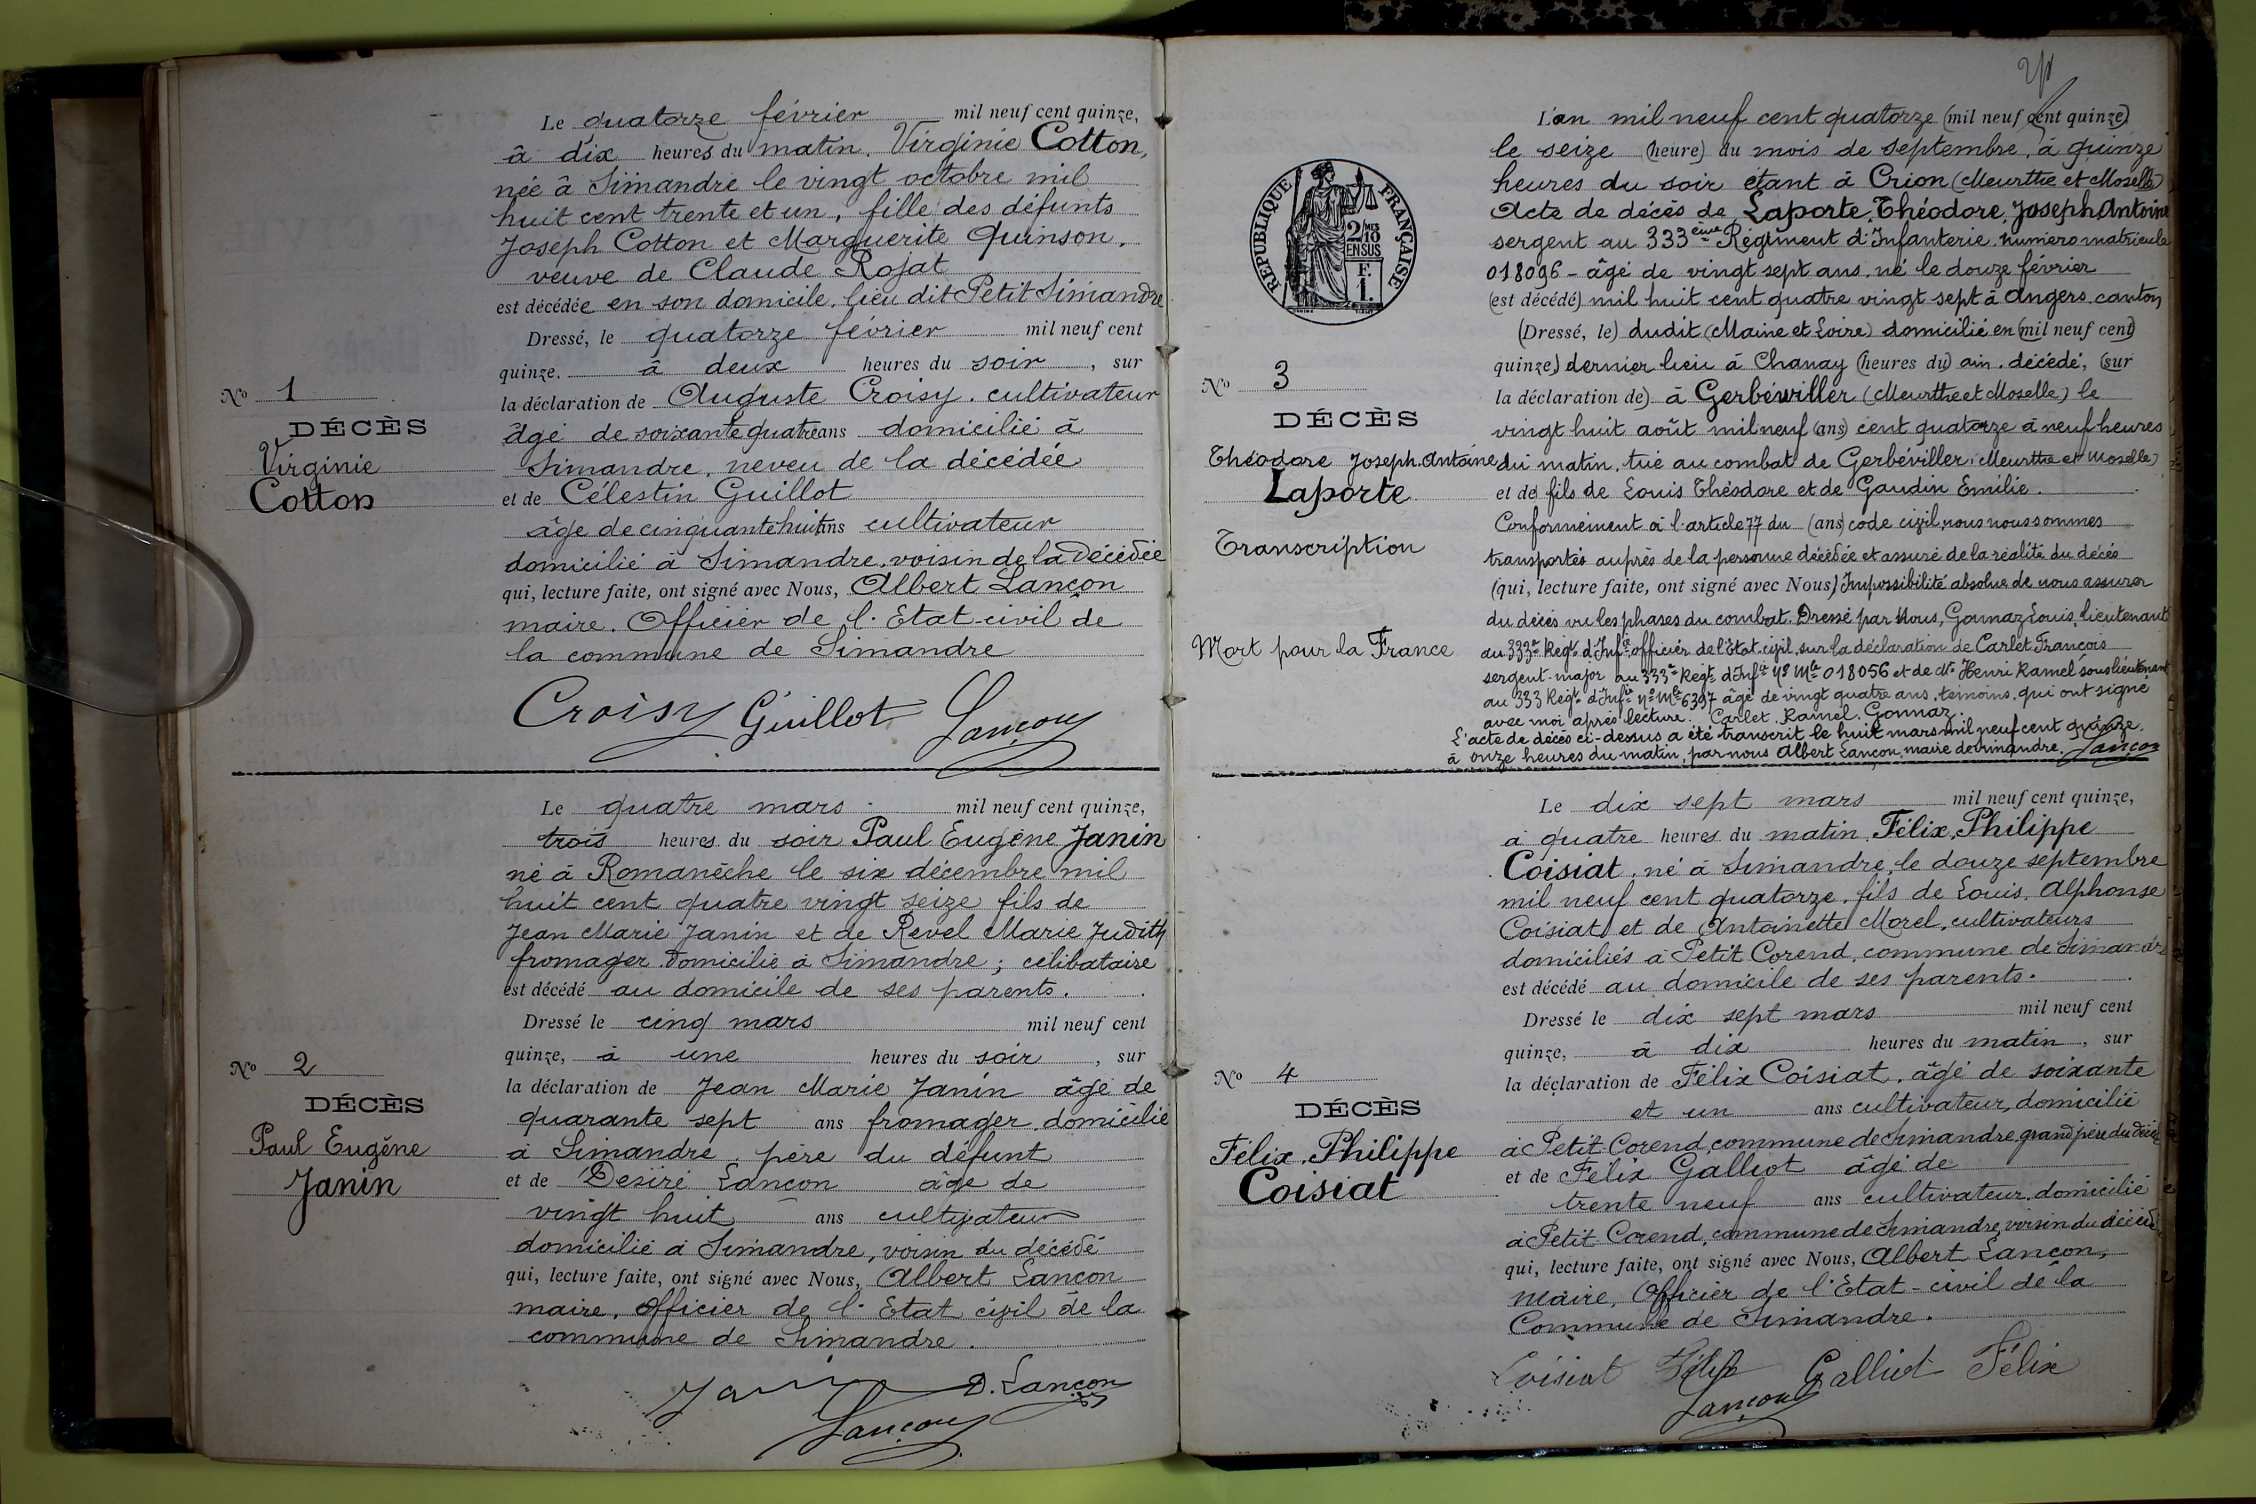 Le quatorze février mil neuf cent quinze,
à dix heures du matin, Virginie Cotton,
née à Simandre le vingt octobre mil
huit cent trente et un, fille des défunts
Joseph Cotton et Marguerite Quinson,
veuve de Claude Rojat
est décédée en son domicile, lieu dit Petit Simandre
Dressé, le quatorze février mil neuf cent
quinze, à deux heures du soir, sur
la déclaration de Auguste Croisy, cultivateur
âgé de soixante quatre ans domicilié à
Simandre, neveu de la décédée
et de Célestin Guillot
âge de cinquante huit ans cultivateur
domicilié à Simandre, voisin de la décédée
qui, lecture faite, ont signé avec Nous, Albert Lançon
maire. Officier de l'Etat-civil de
la commune de Simandre
Croisy Guillot Lançon
No 1
DÉCÈS
Virginie
Cotton
Le quatre mars mil neuf cent quinze,
trois heures du soir Paul Eugène Janin
né à Romanèche le six décembre mil
huit cent quatre vingt seize fils de
Jean Marie Janin et de Revel Marie Judith
fromager domicilié à Simandre ; célibataire
est décédé au domicile de ses parents.
Dressé le cinq mars mil neuf cent
quinze, à une heures du soir, sur
la déclaration de Jean Marie Janin âgé de
quarante sept ans fromager, domicilié
à Simandre, père du défunt
et de Désiré Lançon âge de
vingt huit ans cultivateur
domicilié à Simandre, voisin du décédé
qui, lecture faite, ont signé avec Nous, Albert Lançon
maire, officier de l'Etat civil de la
commune de Simandre.
Janin D. Lançon
Lançon
No 2
DÉCÈS
Paul Eugène
Janin
RÉPUBLIQUE FRANÇAISE
2/10 MES
EN SUS
F.
1.
L'an mil neuf cent quatorze (mil neuf cent quinze)
le seize (heure) du mois de septembre, à quinze
heures du soir étant à Crion (Meurthe et Moselle)
Acte de décès de Laporte, Théodore, Joseph, Antoine
sergent au 333ème Régiment d'Infanterie, numéro matricule
018096 - âgé de vingt sept ans, né le douze février
(est décédé) mil huit cent quatre vingt sept à Angers, canton
(Dressé, le) dudit (Maine et Loire) domicilié en (mil neuf cent)
quinze) dernier lieu à Chanay (heures du) ain. décédé, (sur
la déclaration de) à Gerbéviller (Meurthe et Moselle) le
vingt huit août mil neuf (ans) cent quatorze à neuf heures
du matin, tué au combat de Gerbéviller (Meurthe et Moselle)
et de fils de Louis Théodore et de Gaudin Emilie.
Conformément à l'article 77 du (ans) code civil, nous nous sommes
transportés auprès de la personne décédée et assuré de la réalité du décès
(qui, lecture faite, ont signé avec Nous) Impossibilité absolue de nous assurer
du décès vu les phases du combat. Dressé par Nous, Gonnaz Louis, lieutenant
au 333e Régt d'Infie officier de l'Etat-civil, sur la déclaration de Carlet François
sergent-major au 333e Régt d'Infie No Mle 018056 et de Henri Ramel sous lieutenant
au 333 Régt d'Infie No Mle 6397 âgé de vingt quatre ans, témoins, qui ont signé
avec moi après lecture. Carlet. Ramel. Gonnaz.
L'acte de décès ci-dessus a été transcrit le huit mars mil neuf cent quinze
à onze heures du matin, par nous Albert Lançon, maire de Simandre. Lançon
No 3
DÉCÈS
Théodore Joseph, Antoine
Laporte
Transcription
Mort pour la France
Le dix sept mars mil neuf cent quinze,
à quatre heures du matin, Félix, Philippe
Coisiat, né à Simandre, le douze septembre
mil neuf cent quatorze, fils de Louis, Alphonse
Coisiat et de Antoinette Morel, cultivateurs
domiciliés à Petit Corend, commune de Simandre
est décédé au domicile de ses parents.
Dressé le dix sept mars mil neuf cent
quinze, à dix heures du matin, sur
la déclaration de Félix Coisiat, âgé de soixante
et un ans cultivateur, domicilié
à Petit Corend, commune de Simandre, grand père du décédé
et de Félix Galliot âgé de
trente neuf ans cultivateur, domicilié
à Petit Corend, commune de Simandre, voisin du décédé
qui, lecture faite, ont signé avec Nous, Albert Lançon,
maire, Officier de l'Etat-civil de la
Commune de Simandre.
Coisiat Félix Galliot Félix
Lançon
No 4
DÉCÈS
Félix, Philippe
Coisiat